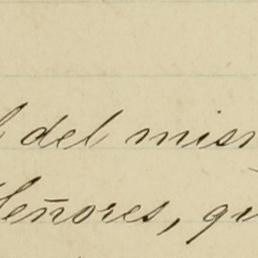 del mis
Señores, qu